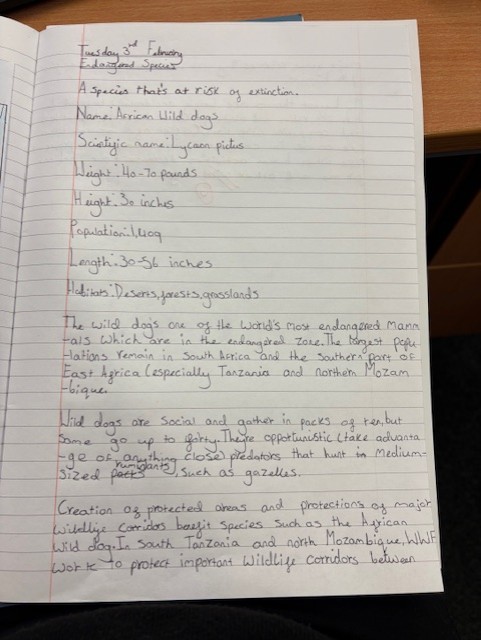 Tuesday 3rd February
Endangered Species
A species that's at risk of extinction.
Name: African Wild dogs
Scientific name: Lycaon pictus
Weight: 40-70 pounds
Height: 30 inches
Population: 1,409
Length: 30-56 inches
Habitats: Deserts, forests, grasslands
The wild dogs one of the World's most endangered Mamm
-als which are in the endangered zone. The largest popu
-lations remain in South Africa and the southern part of
East Africa (especially Tanzania and northern Mozam
-bique.
Wild dogs are social and gather in packs of ten, but
some go up to forty. They're opportunistic (take advanta
-ge of anything close) predators that hunt in Medium-
sized packs ruminants, such as gazelles.
Creation of protected areas and protections of major
wildlife corridors benefit species such as the African
wild dog. In South Tanzania and north Mozambique, WWF
work to protect important Wildlife corridors between